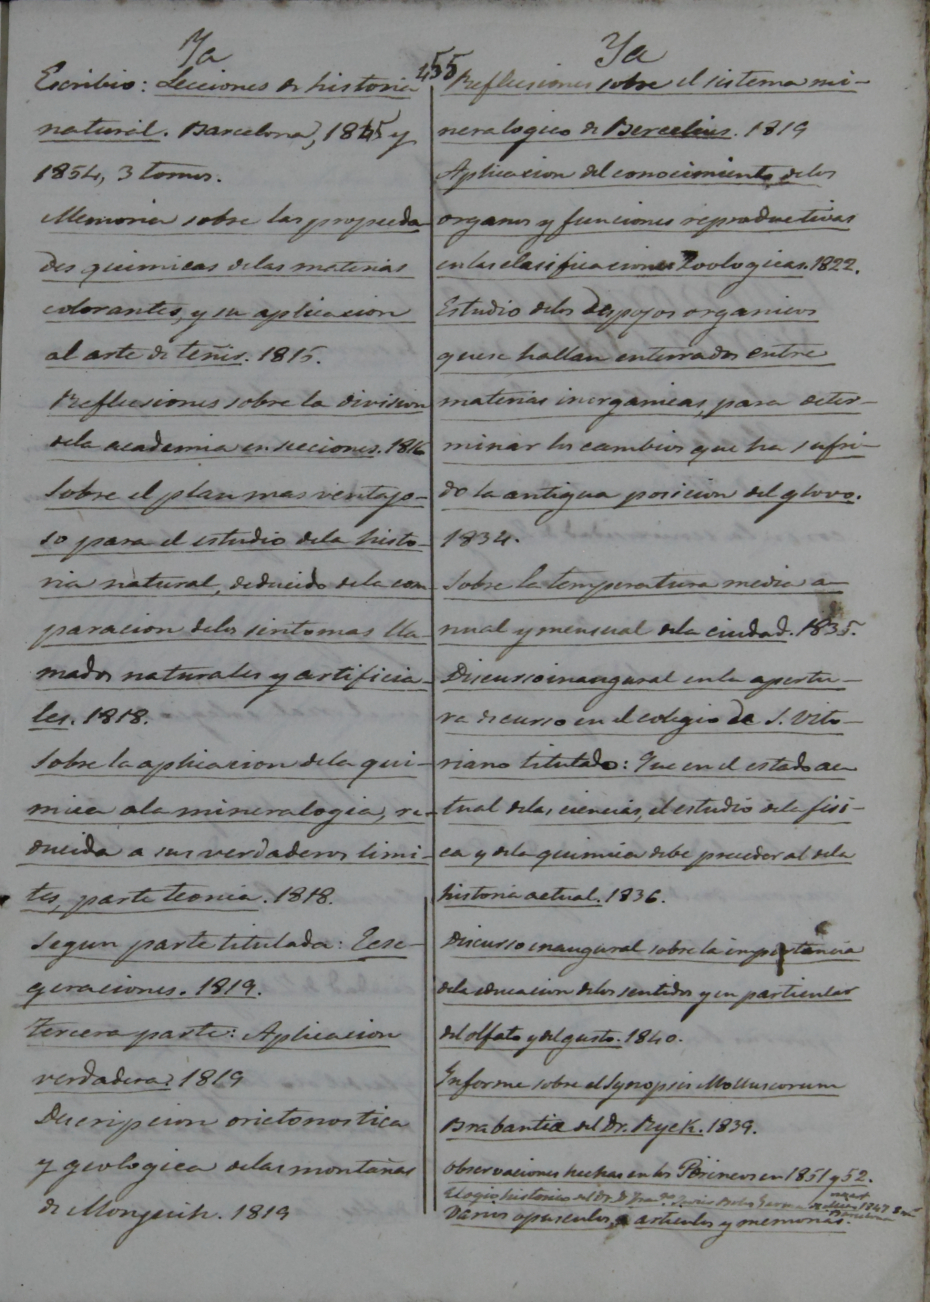 Ya
455
Escribio: Lecciones de historia
natural. Barcelona, 1845 y
1854, 3 tomos.
Memoria sobre las propieda-
des quimicas de las materias
colorantes, y su aplicacion
al arte de teñir. 1815.
Reflecsiones sobre la division
dela academia en secciones. 1816
Sobre el plan mas ventajo-
so para el estudio dela histo-
ria natural, deducido dela com-
paracion delos sintomas lla-
mados naturales y artificia-
les. 1818.
Sobre la aplicacion dela qui-
mica ala mineralogia, re-
ducida a sus verdaderos limi-
tes, parte teoria. 1818.
Segun parte titulada: Ecse-
geraciones. 1819.
Tercera parte: Aplicacion
verdadera: 1819
Descripcion orictonostica
y geologica delas montañas
de Monjuich. 1819
Ya
Reflecsiones sobre el sistema mi-
neralogico de Bercelius. 1819
Aplicacion del conocimiento delos
organos y funciones reproductivas
en las clasificaciones Zoologicas. 1822.
Estudio delos despojos organicos
que se hallan enterrados entre
materias inorganicas, para deter-
minar los cambios que ha sufri-
do la antigua posicion del glovo.
1834.
Sobre la temperatura media a-
nual y mensual dela ciudad. 1835.
Discurso inaugural en la apertu-
ra de curso en el colegio de S. Vito-
riano titulado: Que en el estado ac
tual delas ciencias, el estudio dela fisi-
ca y dela quimica debe preceder al dela
historia actual. 1836.
Discurso inaugural sobre la importancia
dela educacion delos sentidos y en particular
del olfato y del gusto. 1840.
Informe sobre el Synopsis Molluscorum
Brabantiæ del Dr. Ryck. 1839.
Observaciones hechas en los Pirineos en 1851 y 52.
Elogio historico del Dr. D. Fran.co Javier Bolós 1847
Barcelona
Varios opusculos, articulos y memorias.